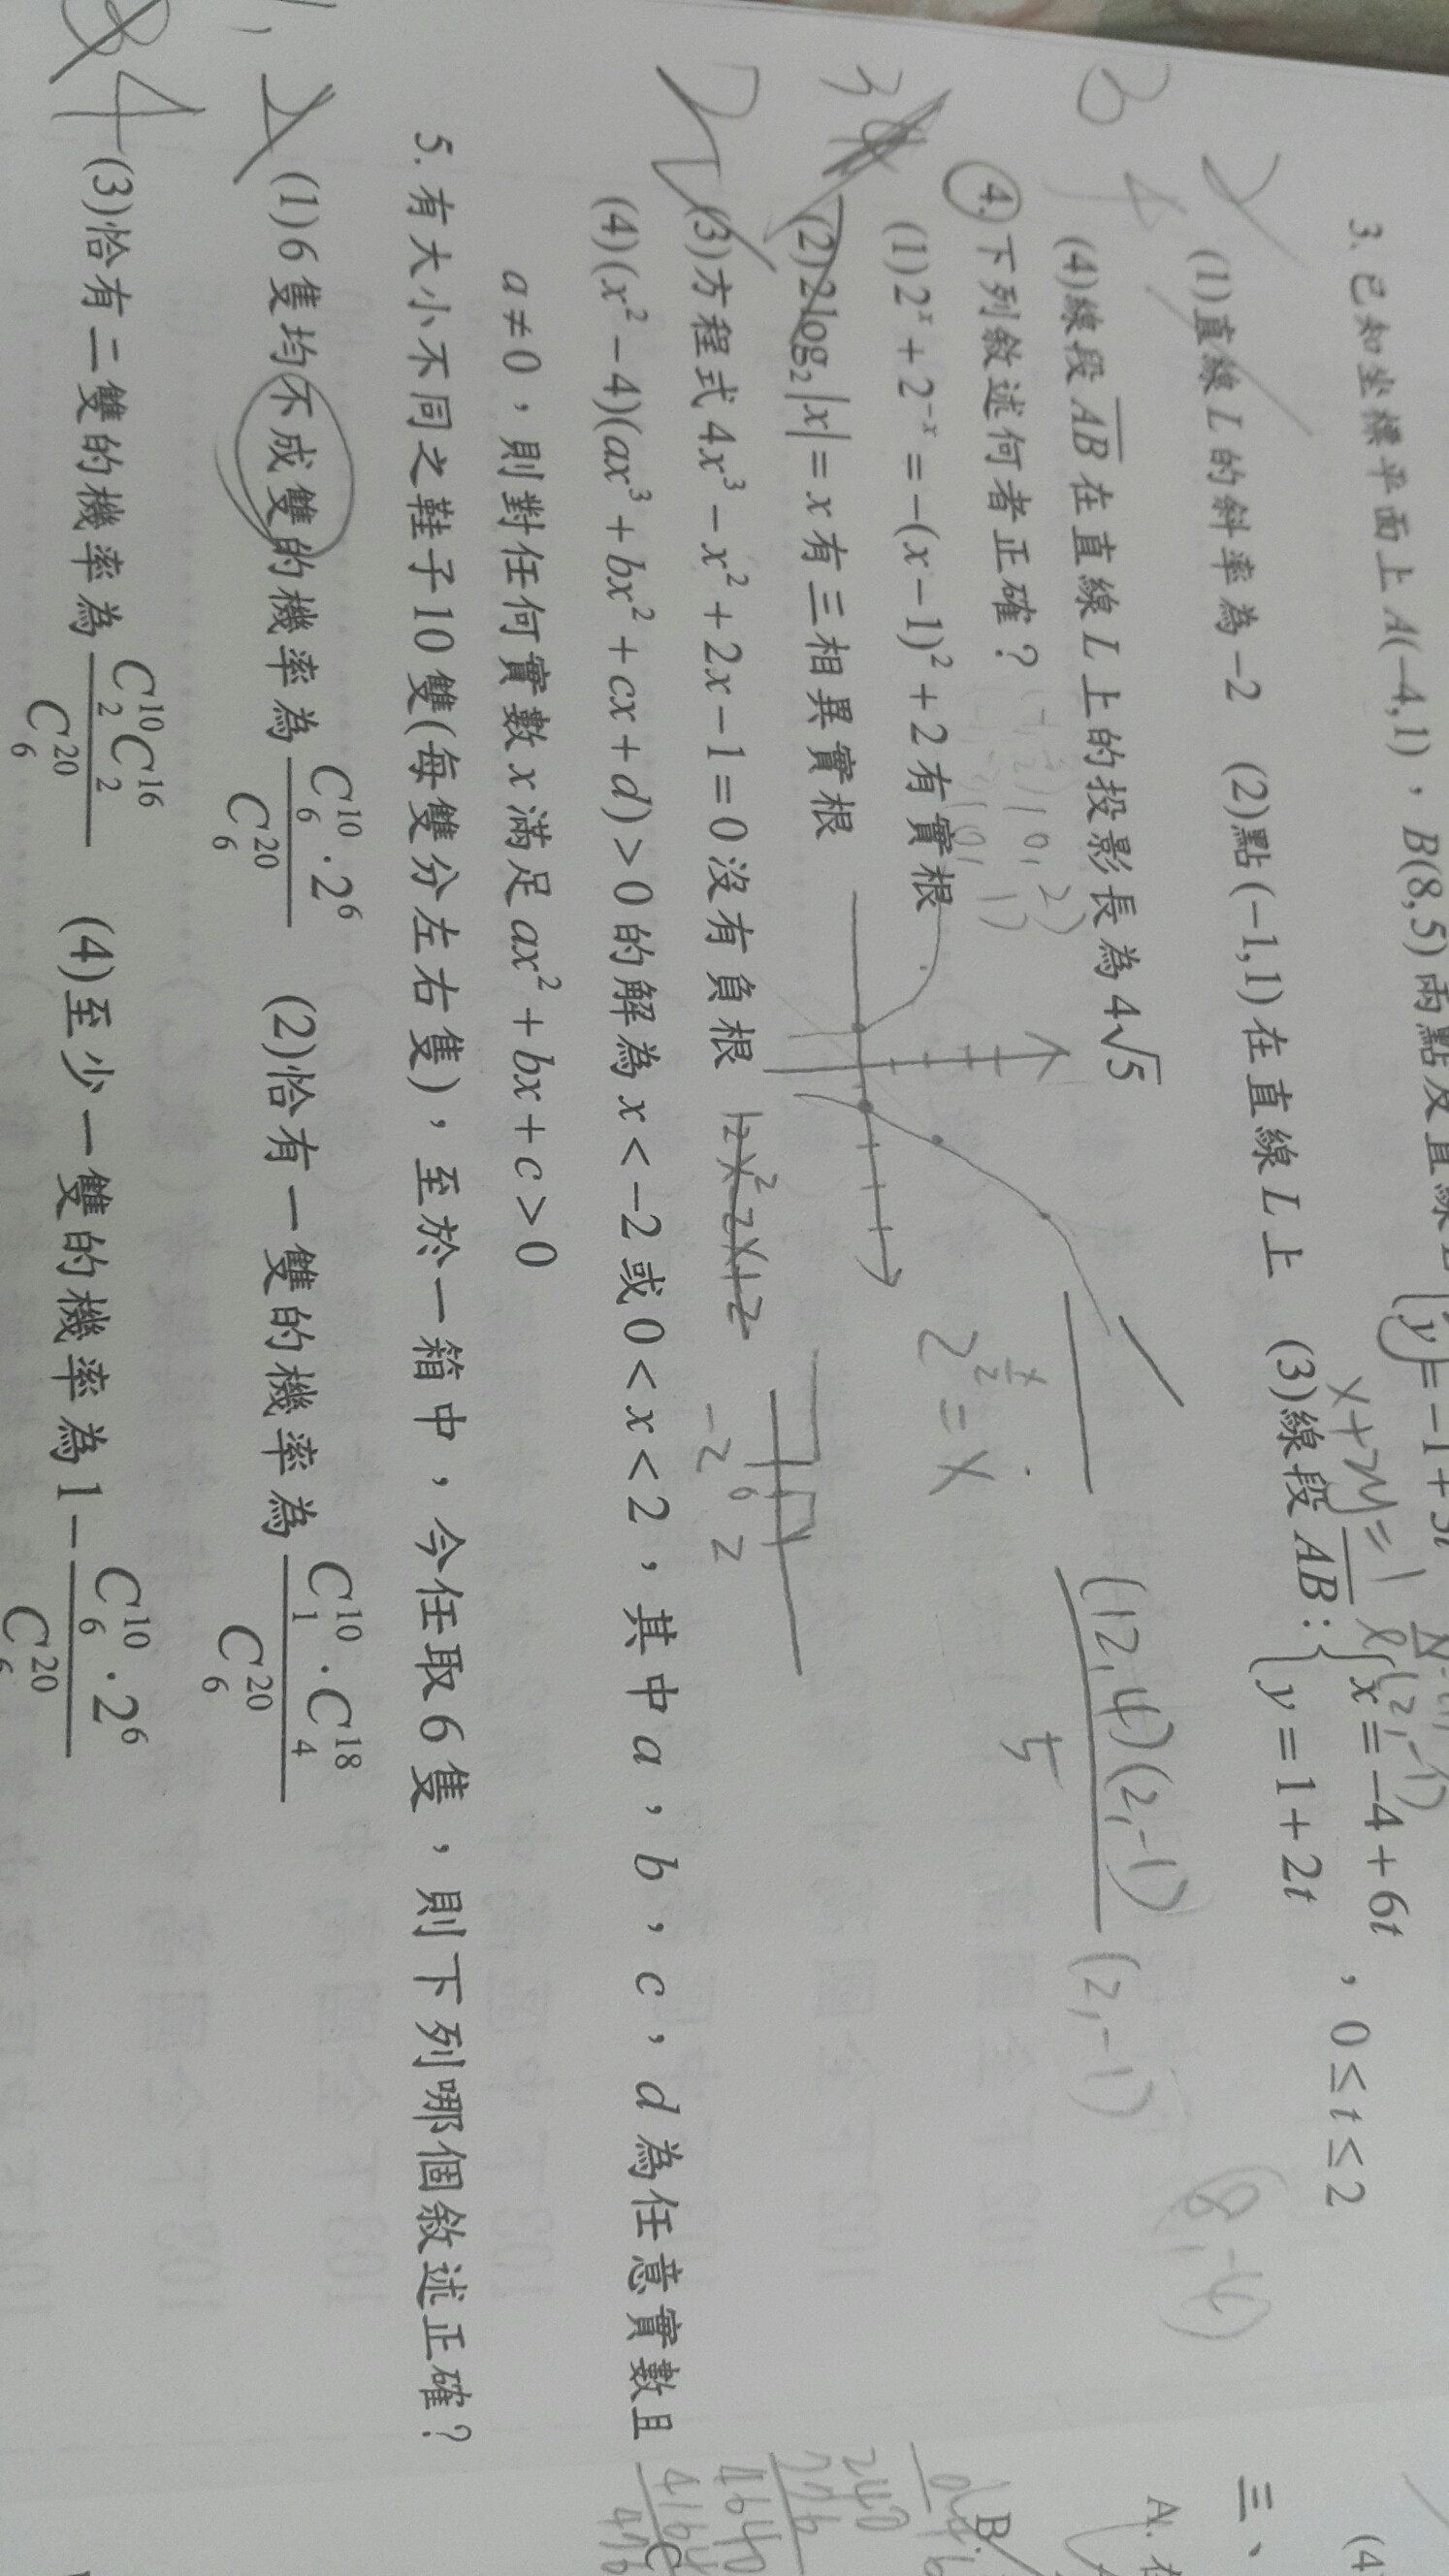 3. 已知坐標平面上 A(−4,1)，B(8,5) 兩點及直線
y = −1 + 3t
x+2y=1
(1)直線 L 的斜率為 −2 (2)點 (−1,1) 在直線 L 上 (3)線段 AB : { x = −4 + 6t y = 1 + 2t ，0 ≤ t ≤ 2
(8,-4)
(4)線段 AB 在直線 L 上的投影長為 4√5
(12,4)(2,-1) (2,-1)
5
④ 下列敘述何者正確？
(1) 2^x + 2^−x = −(x−1)² + 2 有實根
2^(x/2) = x
(2) 2log₂|x| = x 有三相異實根
(3)方程式 4x³ − x² + 2x − 1 = 0 沒有負根
-2 0 2
(4) (x² − 4)(ax³ + bx² + cx + d) > 0 的解為 x < −2 或 0 < x < 2，其中 a，b，c，d 為任意實數且
a ≠ 0，則對任何實數 x 滿足 ax² + bx + c > 0
5. 有大小不同之鞋子 10 雙(每雙分左右隻)，至於一箱中，今任取 6 隻，則下列哪個敘述正確？
(1) 6 隻均不成雙的機率為 C^10_6 · 2^6 / C^20_6 (2)恰有一雙的機率為 C^10_1 · C^18_4 / C^20_6
(3)恰有二雙的機率為 C^10_2 C^16_2 / C^20_6 (4)至少一雙的機率為 1 − C^10_6 · 2^6 / C^20_6
三、
A.
B
240
4640